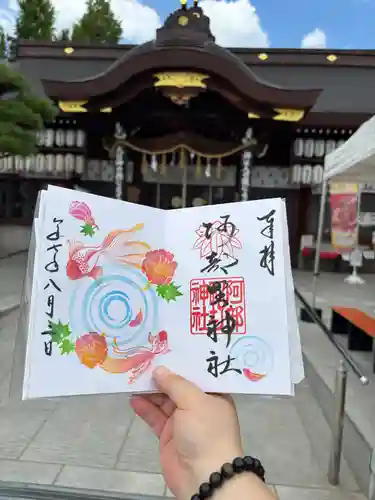 奉拝
阿部野神社
阿部野
神社
年八月
日